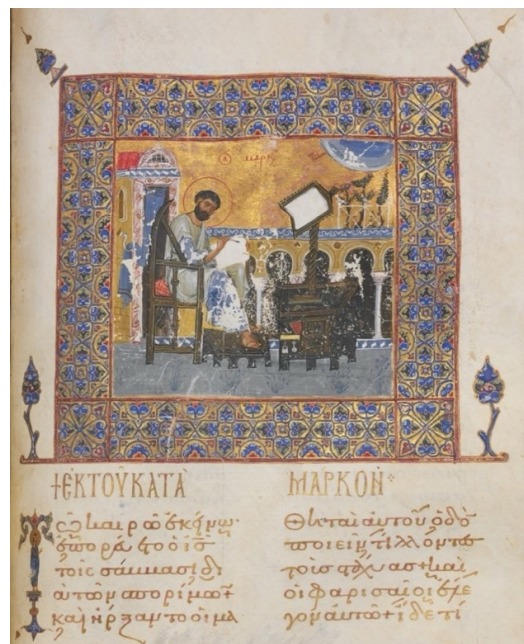 μαρκ
+ΕΚ ΤΟΥ ΚΑΤΑ ΜΑΡΚΟΝ
Τῶ καιρῶ ἐκείνω·
ἐπορεύετο ὁ ἰς
τοῖς σάββασι δι
ὰ τῶν σπορίμων+
καὶ ἤρξαντο οἱ μα
θηταὶ αὐτοῦ ὁδὸ
ποιεῖν τίλλοντες
τοὺς στάχυας+καὶ
οἱ φαρισαῖοι ἔλε
γον αὐτῶ+ἴδε τί